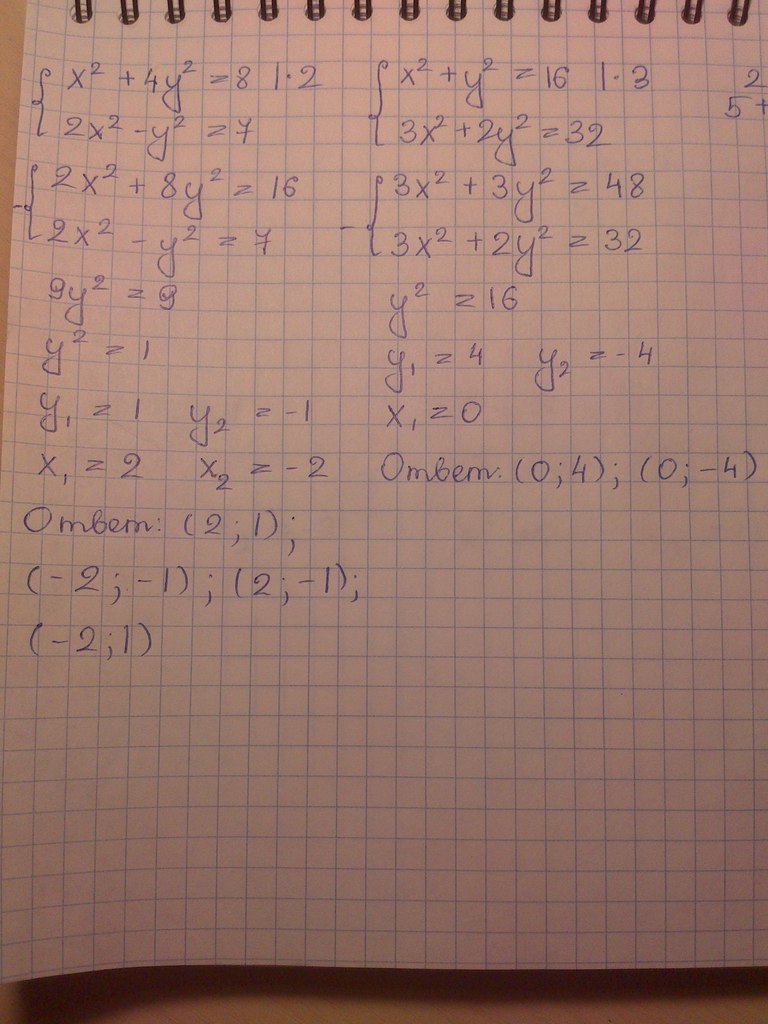 x² + 4y² = 8 | · 2
2x² - y² = 7
2x² + 8y² = 16
- 2x² - y² = 7
9y² = 9
y² = 1
y₁ = 1 y₂ = -1
x₁ = 2 x₂ = -2
Ответ: (2; 1);
(-2; -1); (2; -1);
(-2; 1)
x² + y² = 16 | · 3
3x² + 2y² = 32
3x² + 3y² = 48
- 3x² + 2y² = 32
y² = 16
y₁ = 4 y₂ = -4
x₁ = 0
Ответ: (0; 4); (0; -4)
2
5 +